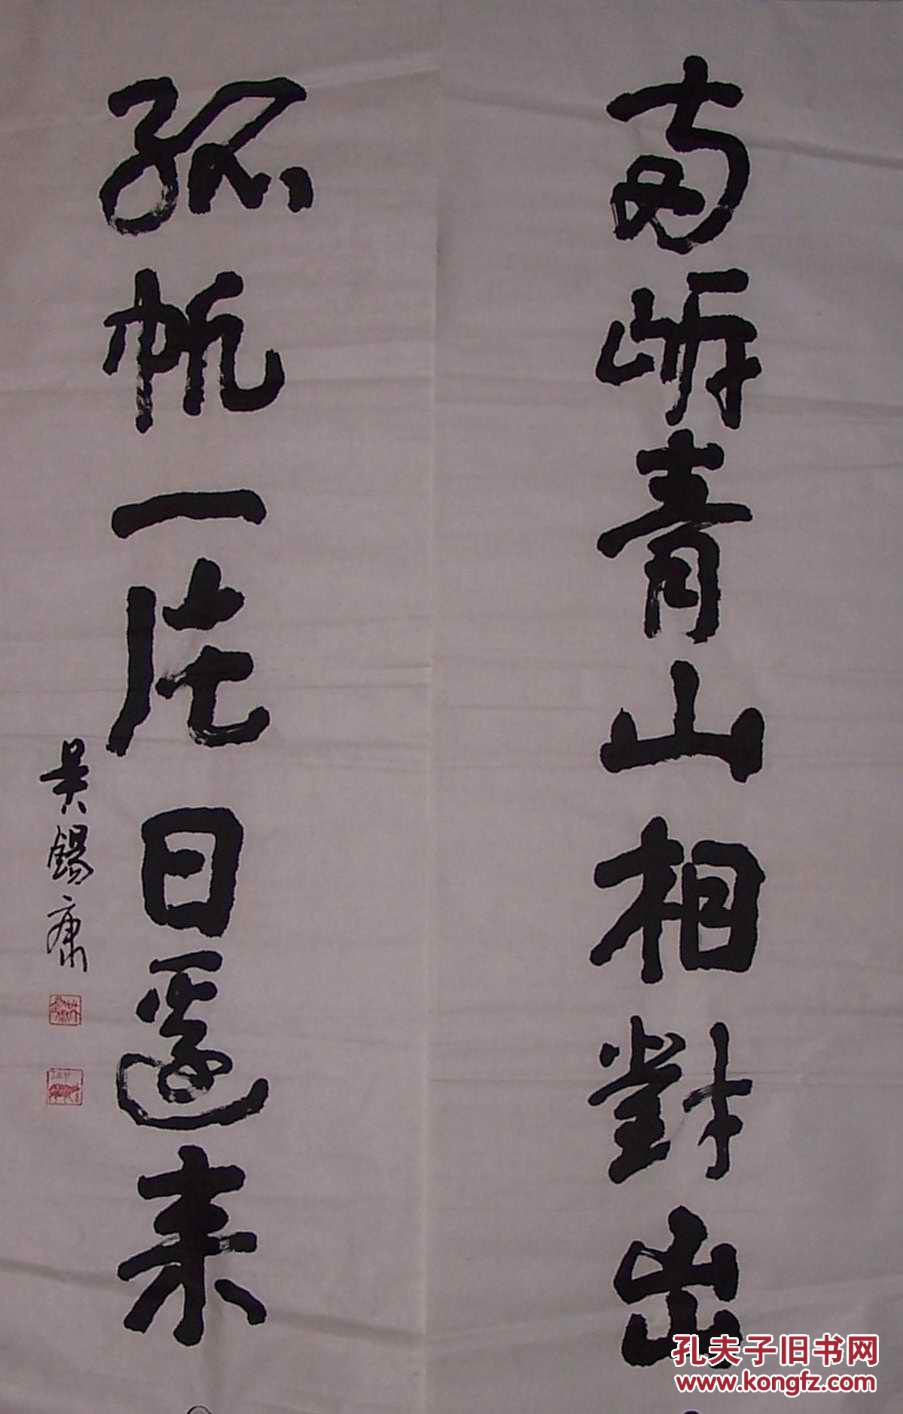 两岸青山相對出
孤帆一片日邊来
吴錫康
孔夫子旧书网
www.kongfz.com